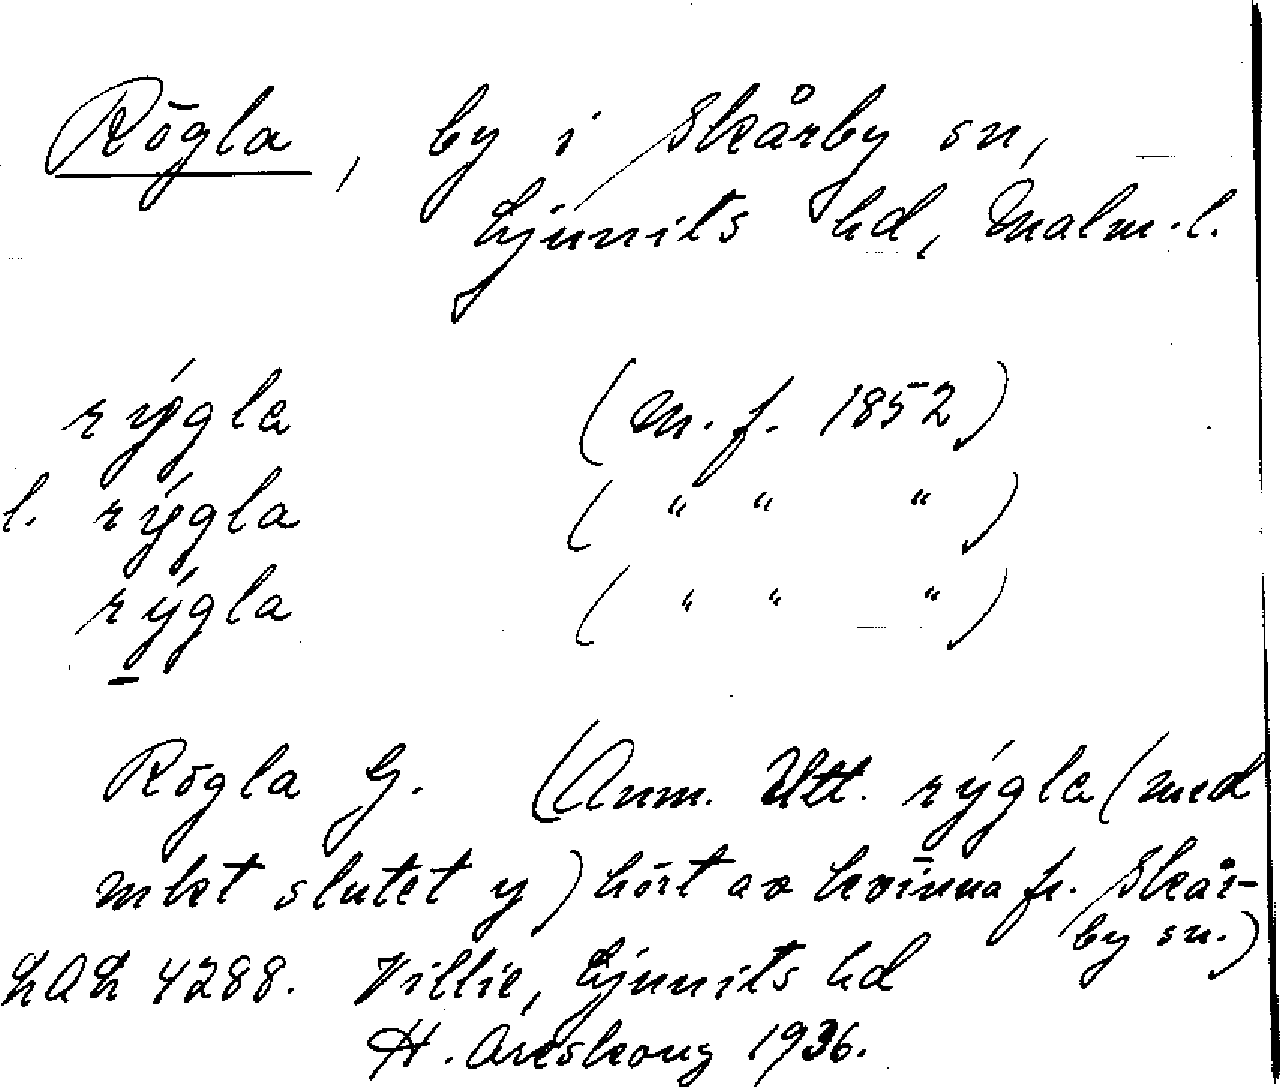 Rögla, by i Skårby sn,
Ljunits hd, Malm.l.
rýgla (M.f. 1852)
l. rýgla ( " " " )
rýgla ( " " " )
Rögla G. (Anm. Utt. rýgla (med
mkt slutet y) hört av kvinna fr. Skår-
by sn.)
LAL 4288. Villie, Ljunits hd
H. Areskoug 1936.